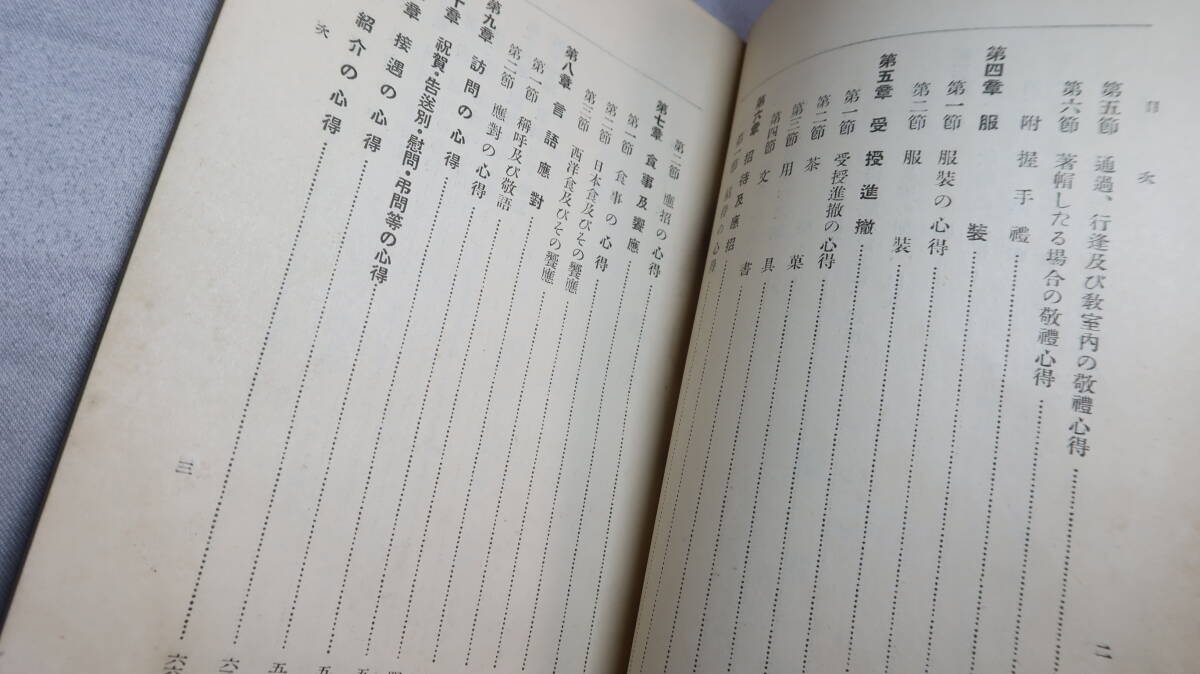 目次
第五節 通過、行逢及び教室内の敬禮心得
第六節 著帽したる場合の敬禮心得
附 握手禮
第四章 服裝
第一節 服裝の心得
第二節 服裝
第五章 受授進撤
第一節 受授進撤の心得
第二節 茶菓
第三節 用具
第四節 文書
第六章 招待及應招
二
第二節 應招の心得
第七章 食事及饗應
第一節 食事の心得
第二節 日本食及びその饗應
第三節 西洋食及びその饗應
第八章 言語應對
第一節 稱呼及び敬語
第二節 應對の心得
第九章 訪問の心得
十章 祝賀・告送別・慰問・弔問等の心得
章 接遇の心得
紹介の心得
次
三